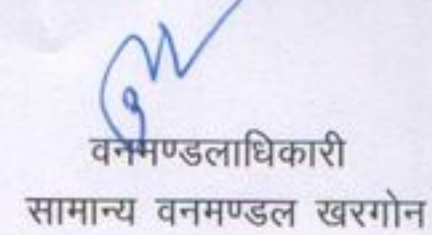 वनमण्डलाधिकारी
सामान्य वनमण्डल खरगोन